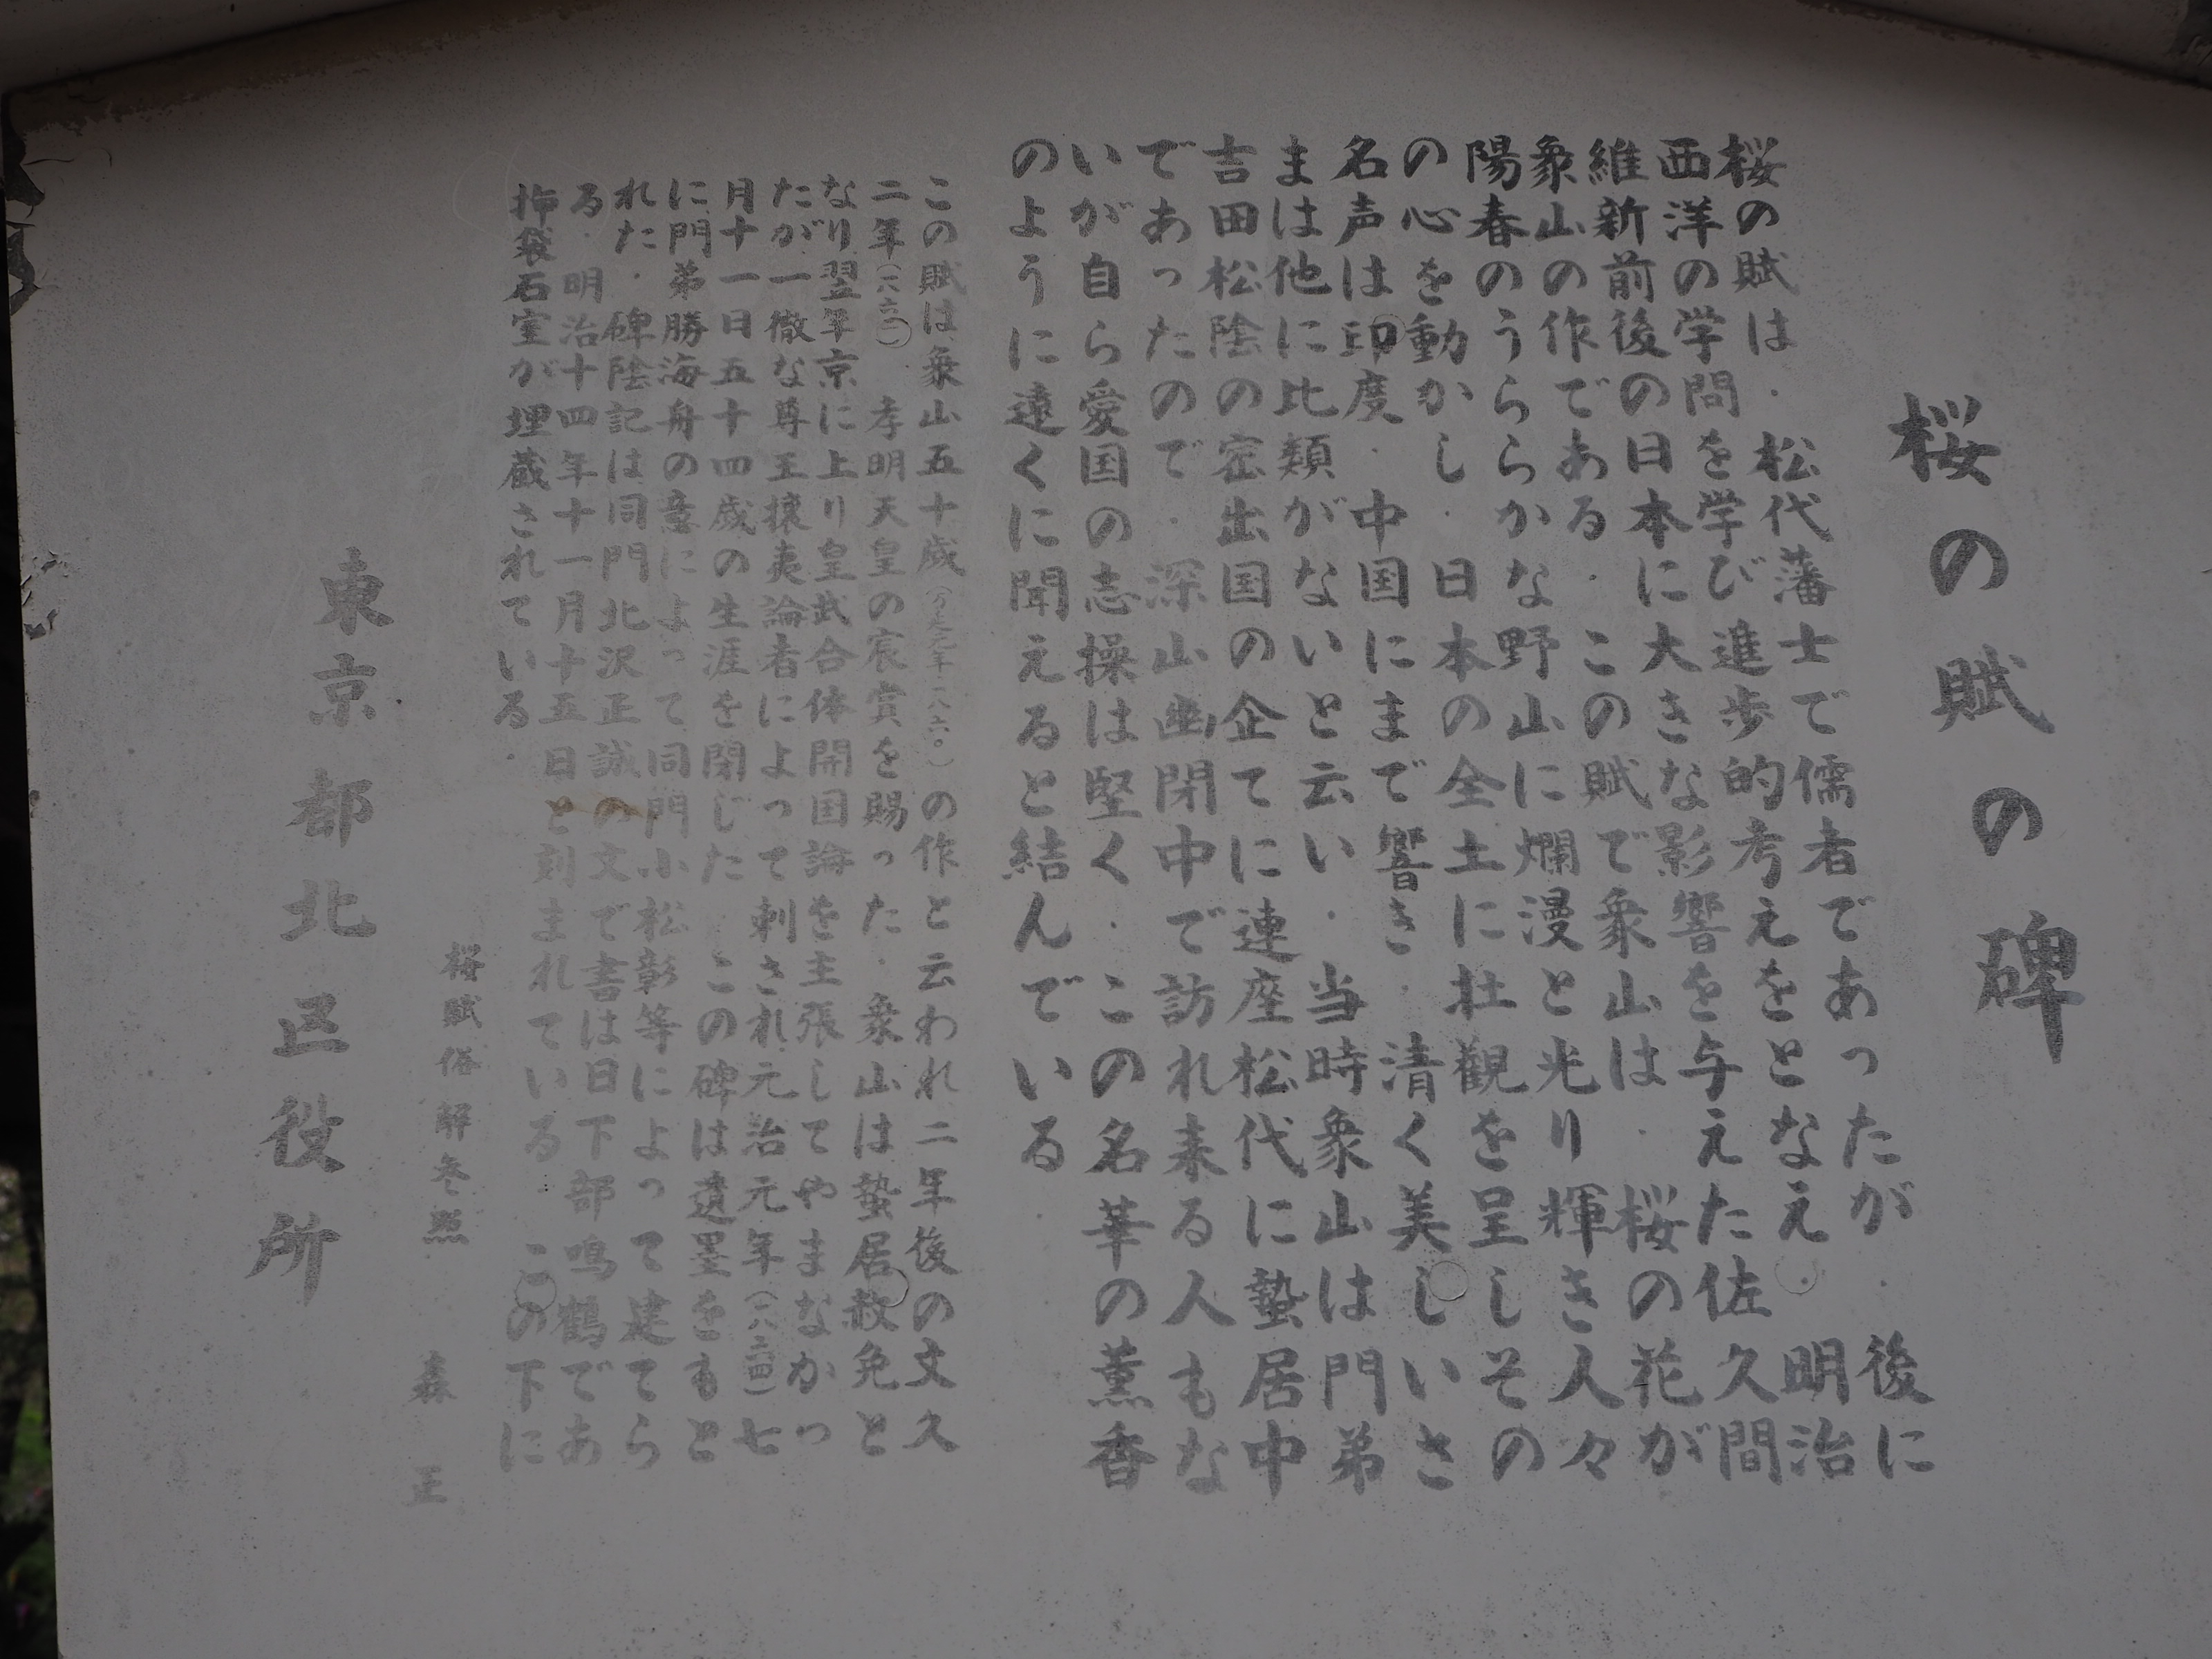 桜の賦の碑
桜の賦は．松代藩士で儒者であったが．後に
西洋の学問を学び進歩的考えをとなえ．明治
維新前後の日本に大きな影響を与えた佐久間
象山の作である．この賦で象山は．桜の花が
陽春のうららかな野山に爛漫と光り輝き人々
の心を動かし．日本の全土に壮観を呈しその
名声は印度．中国にまで響き．清く美しいさ
まは他に比類がないと云い．当時象山は門弟
吉田松陰の密出国の企てに連座松代に蟄居中
であったので．深山幽閉中で訪れ来る人もな
いが自ら愛国の志操は堅く．この名華の薫香
のように遠くに聞えると結んでいる．
この賦は象山五十歳（万延元年一八六〇）の作と云われ二年後の文久
二年（一八六二）．孝明天皇の宸賞を賜った．象山は蟄居赦免と
なり翌年京に上り皇武合体開国論を主張してやまなかっ
たが一徹な尊王攘夷論者によって刺され元治元年（一八六四）七
月十一日五十四歳の生涯を閉じた．この碑は遺墨をもと
に門弟勝海舟の意によって同門小松彰等によって建てら
れた．碑陰記は同門北沢正誠の文で書は日下部鳴鶴であ
る．明治十四年十一月十五日と刻まれている．この下に
挿袋石室が埋蔵されている．
桜賦俗解参照 森 正
東京都北区役所